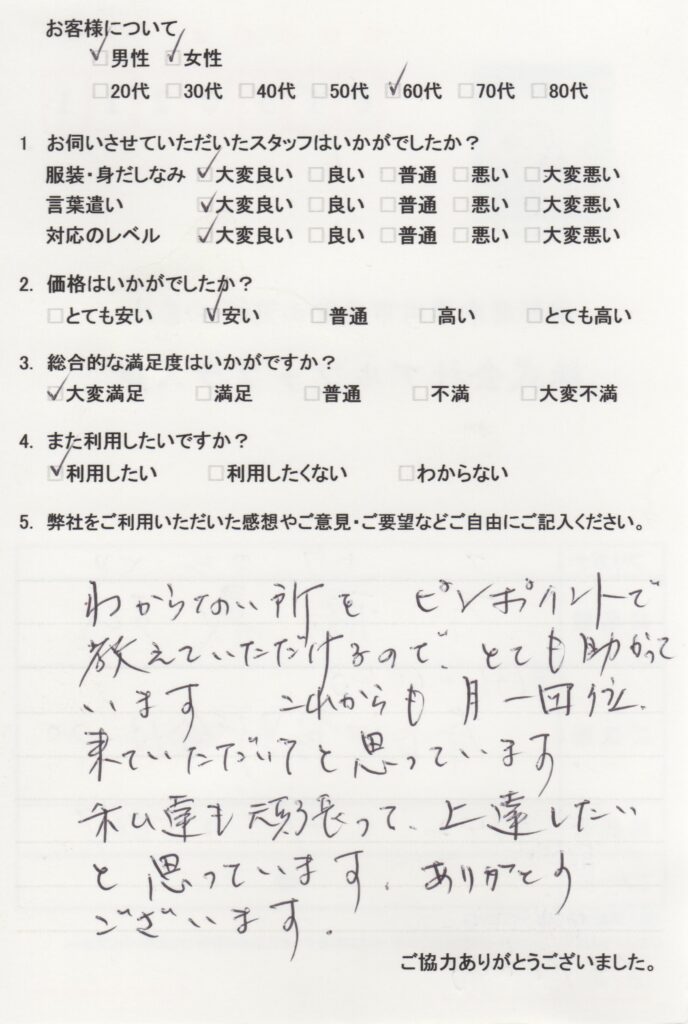 お客様について
☑男性 ☑女性
□20代 □30代 □40代 □50代 ☑60代 □70代 □80代
1 お伺いさせていただいたスタッフはいかがでしたか？
服装・身だしなみ ☑大変良い □良い □普通 □悪い □大変悪い
言葉遣い ☑大変良い □良い □普通 □悪い □大変悪い
対応のレベル ☑大変良い □良い □普通 □悪い □大変悪い
2. 価格はいかがでしたか？
□とても安い ☑安い □普通 □高い □とても高い
3. 総合的な満足度はいかがですか？
☑大変満足 □満足 □普通 □不満 □大変不満
4. また利用したいですか？
☑利用したい □利用したくない □わからない
5. 弊社をご利用いただいた感想やご意見・ご要望などご自由にご記入ください。
わからない所を ピンポイントで
教えていただけるので、とても助かって
います これからも 月一回位、
来ていただいてと思っています
私達も頑張って、上達したい
と思っています、ありがとう
ございます。
ご協力ありがとうございました。